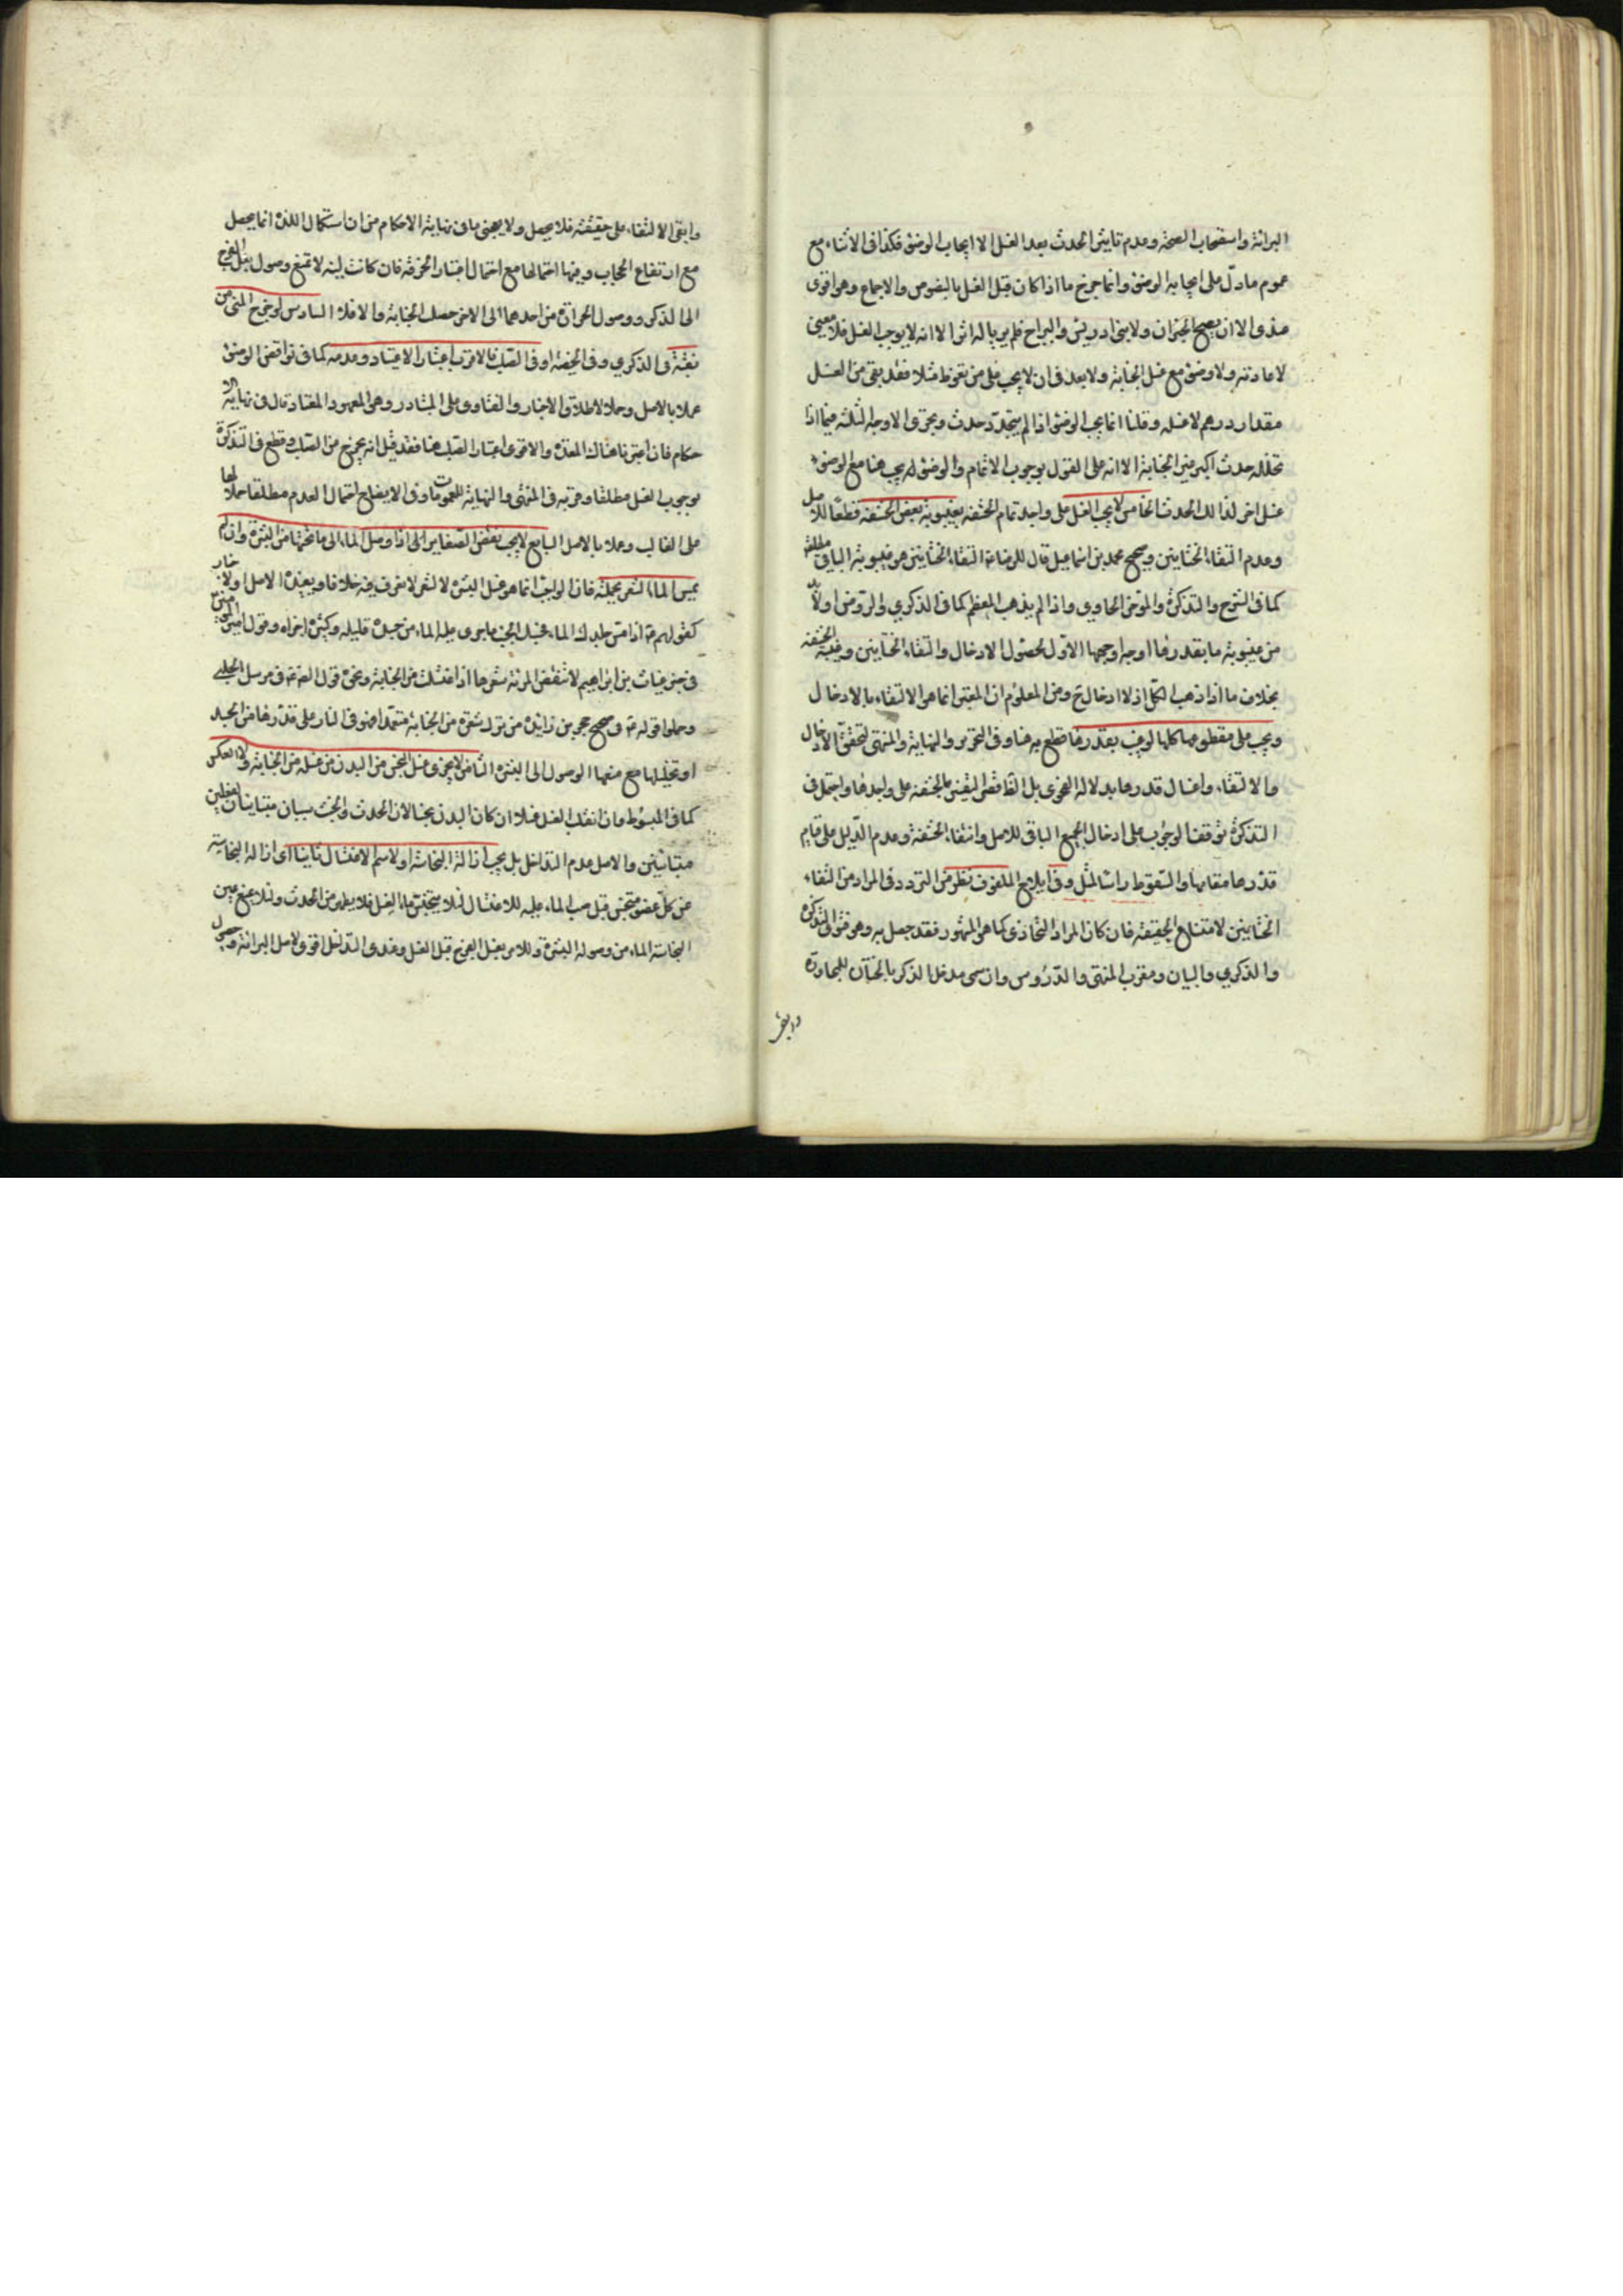 البرائة واستصحاب الصحة وعدم تاثير الحدث بعد الغسل الا ايجاب الوضوء فكذا فى الاثناء مع
عموم ما دل على ايجابه الوضوء وانما خرج ما اذا كان قبل الغسل بالنصوص والاجماع وهو اقوى
عندى الا ان يصح الخبران ولابنى ادريس والبراج فلم يريا له اثرا الا انه لا يوجب الغسل فلا معنى
لاعادته ولا وضوء مع غسل الجنابة ولا بعد فى ان لا يجب على من تغوط مثلا فقد بقى من الغسل
مقدار درهم لا غسله وقلنا انما يجب الوضوء اذا لم يتجدد حدث ويجرى الاوجه الثلثة فيما اذا
تخلله حدث اكبر غير الجنابة الا انه على القول بوجوب الاتمام والوضوء له يجب هنا مع الوضوء
غسل اخر لذلك الحدث الخامس لا يجب الغسل على واجد تمام الحشفة بغيبوبة بعض الحشفة قطعا للاصل
وعدم التقاء الختانين وصحيح محمد بن اسماعيل قال للرضا ع التقاء الختانين هو غيبوبة الباقى مطلقا
كما فى الشرح والتذكرة والموجز الحاوى واذا لم يذهب المعظم كما فى الذكرى والروض اولا بد
من غيبوبة ما بقدرها اوجه اوجهها الاول لحصول الادخال والتقاء الختانين وغيبة الحشفة
بخلاف ما اذا ذهب الكل اذ لا ادخال ح ومن المعلوم ان المعتبر انما هو الالتقاء بالادخال
ويجب على مقطوعها كلها لوغيب بقدرها قطع به هنا وفى التحرير والنهاية والمنتهى لتحقق الادخال
والالتقاء وادخال قدرها بدلالة الفحوى بل القاضى اليقين بالحشفة على واجدها واحتمل فى
التذكرة توقفنا لوجوب على ادخال الجميع الباقى للاصل وانتفاء الحشفة وعدم الدليل على قيام
قدرها مقامها والسقوط راسا لمثل وفى ايلاج الملفوف نظر من التردد فى المراد من التقاء
الختانين لامتناع الحقيقة فان كان المراد التحاذى كما هو المشهور فقد حصل به وهو قوى التذكرة
والذكرى والبيان ومقرب المنتهى والدروس وان سمى مدخل الذكر بالختان للمجاورة
وابقى
وابقى الالتقاء على حقيقته فلا يحصل ولا يعجبنى ما فى نهاية الاحكام من ان استكمال اللذة انما يحصل
مع ارتفاع الحجاب وفيها احتمالها مع احتمال اعتبار الخرقة فان كانت لينة لا تمنع وصول بلل الفرج
الى الذكر ووصول الحرارة من احدهما الى الاخر حصلت الجنابة والا فلا السادس لو خرج المنى من
ثقبة فى الذكر وفى الخصية او فى الصلب فالاقرب اعتبار الاعتياد وعدمه كما فى نواقض الوضوء
عملا بالاصل وحملا لاطلاق الاخبار والفتاوى على المتبادر وهو المعهود المعتاد قال فى نهاية الا
حكام فان اعتبرنا هناك المعدة والاقوى اعتبار الصلب هنا فقد قيل انه يخرج من الصلب وقطع فى التذكرة
بوجوب الغسل مطلقا وقربه فى المنتهى والنهاية للعمومات وفى الايضاح احتمال العدم مطلقا حملا لها
على الغالب وعملا بالاصل السابع لا يجب نقض الضفاير الى اذا وصل الماء الى ما تحتها من البشرة وان لم
يمس الماء الشعر بجملته فان الواجب انما هو غسل البشرة لا الشعر لا نعرف فيه خلافا ويعضده الاصل والاخبار
كقولهم ع اذا مس جلدك الماء فحسبك الجنب ما جرى عليه الماء من جسده قليله وكثيره اجزاه وقول امير المؤمنين
فى خبر غياث بن ابراهيم لا تنقض المرئة شعرها اذا اغتسلت من الجنابة ونحوه قول الصادق ع فى مرسل الحلبى
وحملوا قوله ع فى صحيح حجر بن زائدة من ترك شعرة من الجنابة متعمدا فهو فى النار على قدرها من الجسد
او تخليلها مع منعها الوصول الى البشرة الثامن لا يجزى غسل النجس من البدن عن غسله من الجنابة ولا العكس
كما فى المبسوط وان انقلب الغسل غسلا ان كان البدن نجسا لان الحدث والخبث سببان متباينان لفعلين
متباينين والاصل عدم التداخل بل يجب ازالة النجاسة اولا ثم الاغتسال ثانيا اى ازالة النجاسة
عن كل عضو متنجس قبل صب الماء عليه للاغتسال لئلا يتنجس ماء الغسل فلا يطهر من الحدث ولئلا يمنع عين
النجاسة الماء من وصوله البشرة وللامر بغسل الفرج قبل الغسل وعندى التداخل اقوى لاصل البرائة وحصول